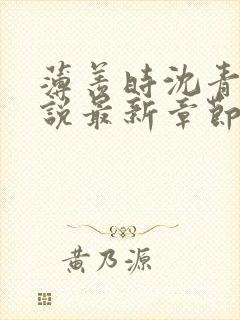 薄善時沈青
說最新章節
黃乃源